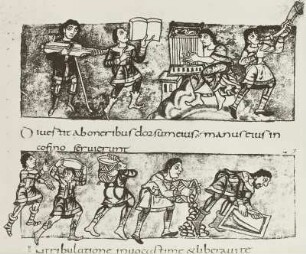 Diuertit aboneribus dorsumeius manuseius in
cofino seruierunt
In tribulatione inuocastime &liberaui te